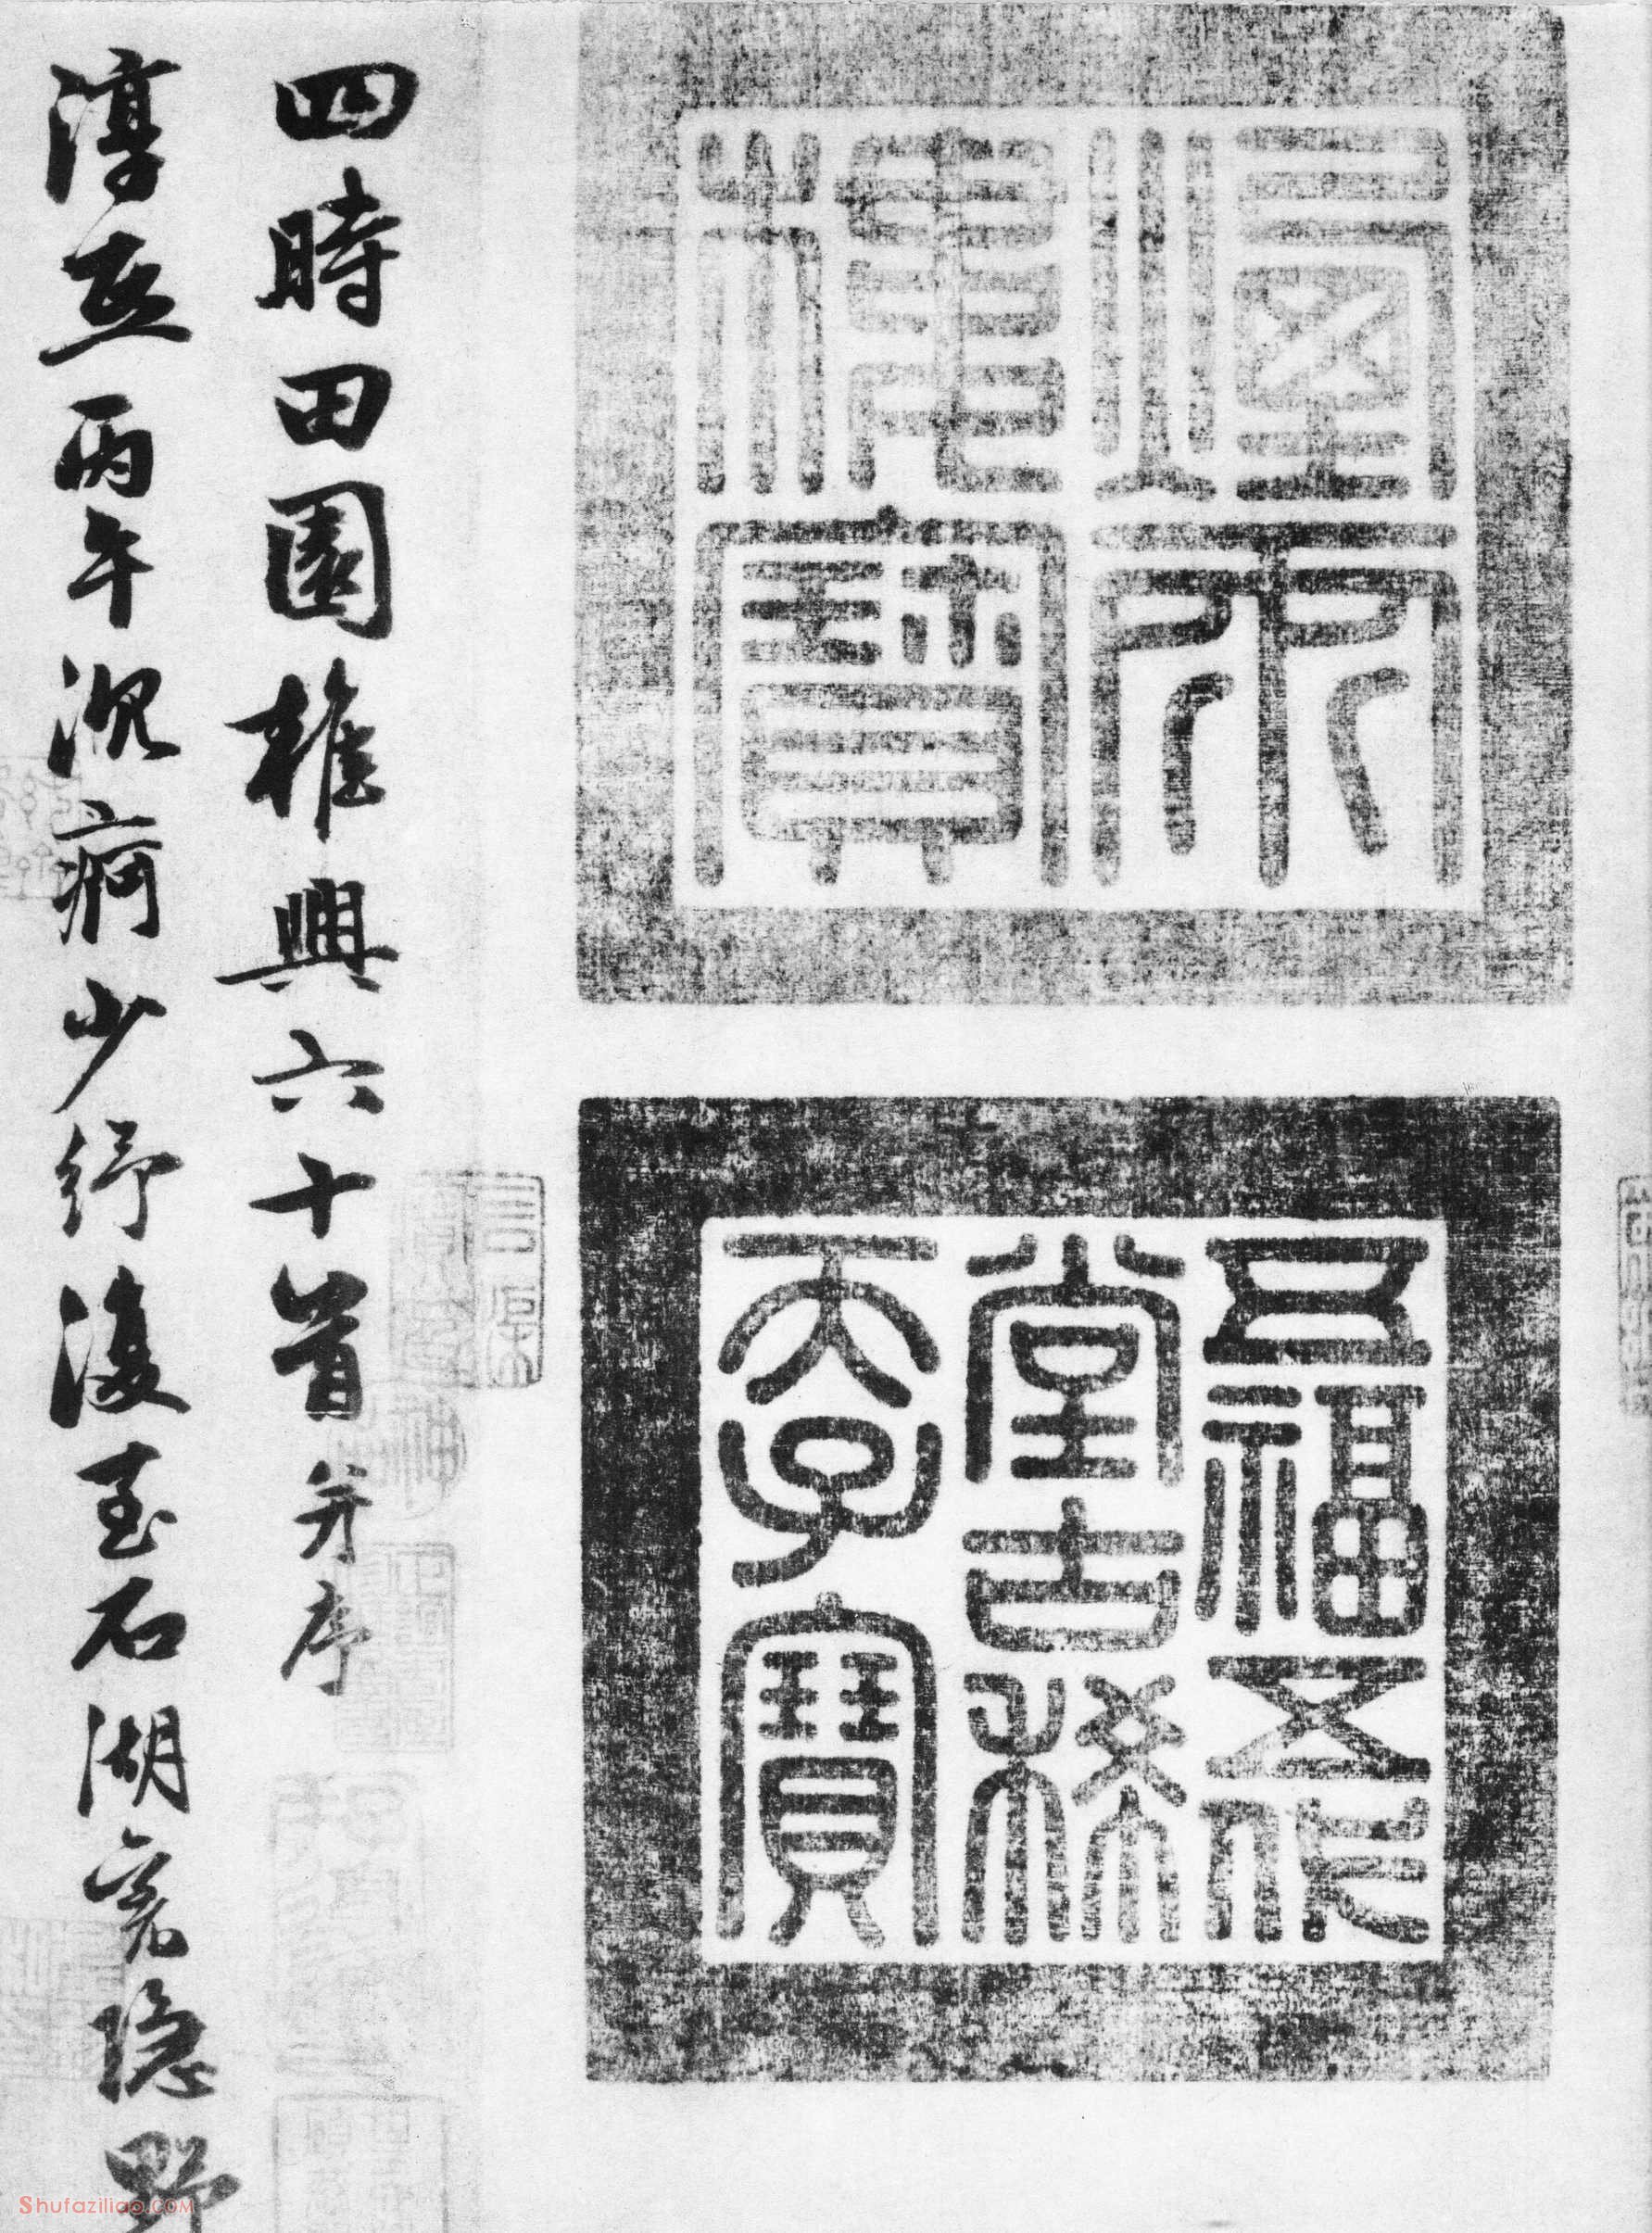 煙雨樓寶
五福五代
堂古稀
天子寶
四時田園雜興六十首并序
淳熙丙午沉痾少紓復至石湖舊隱野
Shufaziliao.COM